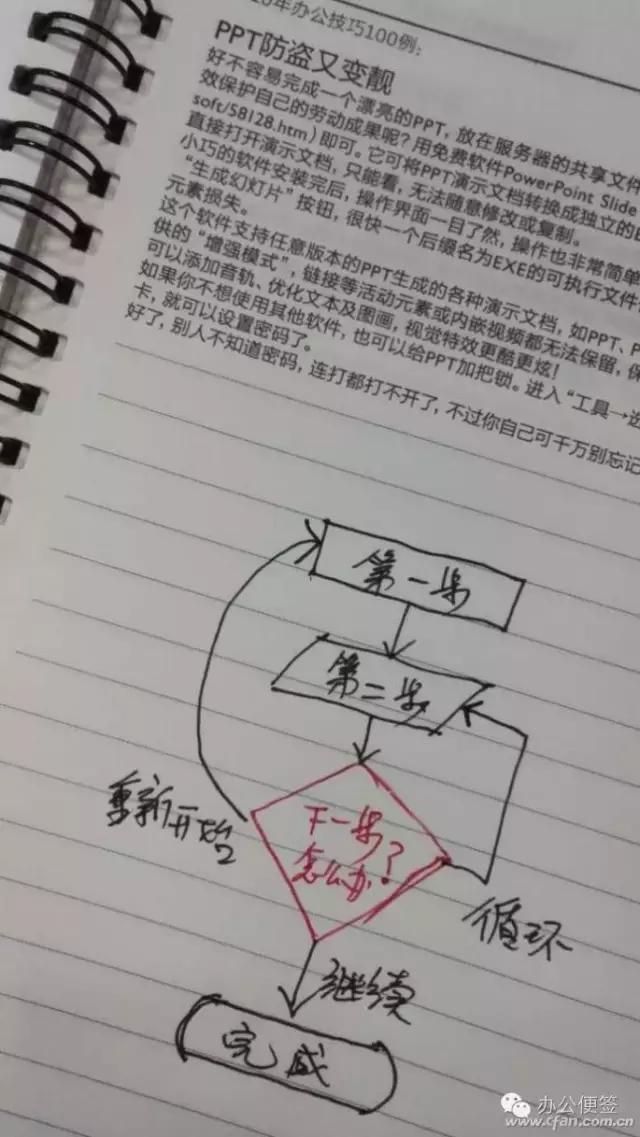 年办公技巧100例：
PPT防盗又变靓
好不容易完成一个漂亮的PPT，放在服务器的共享文件
效保护自己的劳动成果呢？用免费软件PowerPoint Slide
soft/58128.htm）即可。它可将PPT演示文档转换成独立的E
直接打开演示文档，只能看，无法随意修改或复制。
小巧的软件安装完后，操作界面一目了然，操作也非常简单
“生成幻灯片”按钮，很快一个后缀名为EXE的可执行文件
元素损失。
这个软件支持任意版本的PPT生成的各种演示文档，如PPT、P
供的“增强模式”，链接等活动元素或内嵌视频都无法保留，保
可以添加音轨、优化文本及图画，视觉特效更酷更炫！
如果你不想使用其他软件，也可以给PPT加把锁。进入“工具→选
卡，就可以设置密码了。
好了，别人不知道密码，连打都打不开了，不过你自己可千万别忘记
第一步
第二步
下一步
怎么办？
重新开始
循环
继续
完成
办公便签
www.cfan.com.cn